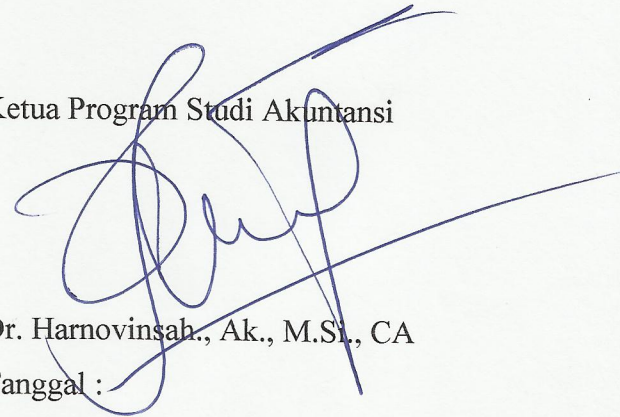 Ketua Program Studi Akuntansi
Dr. Harnovinsah., Ak., M.Si., CA
Tanggal :